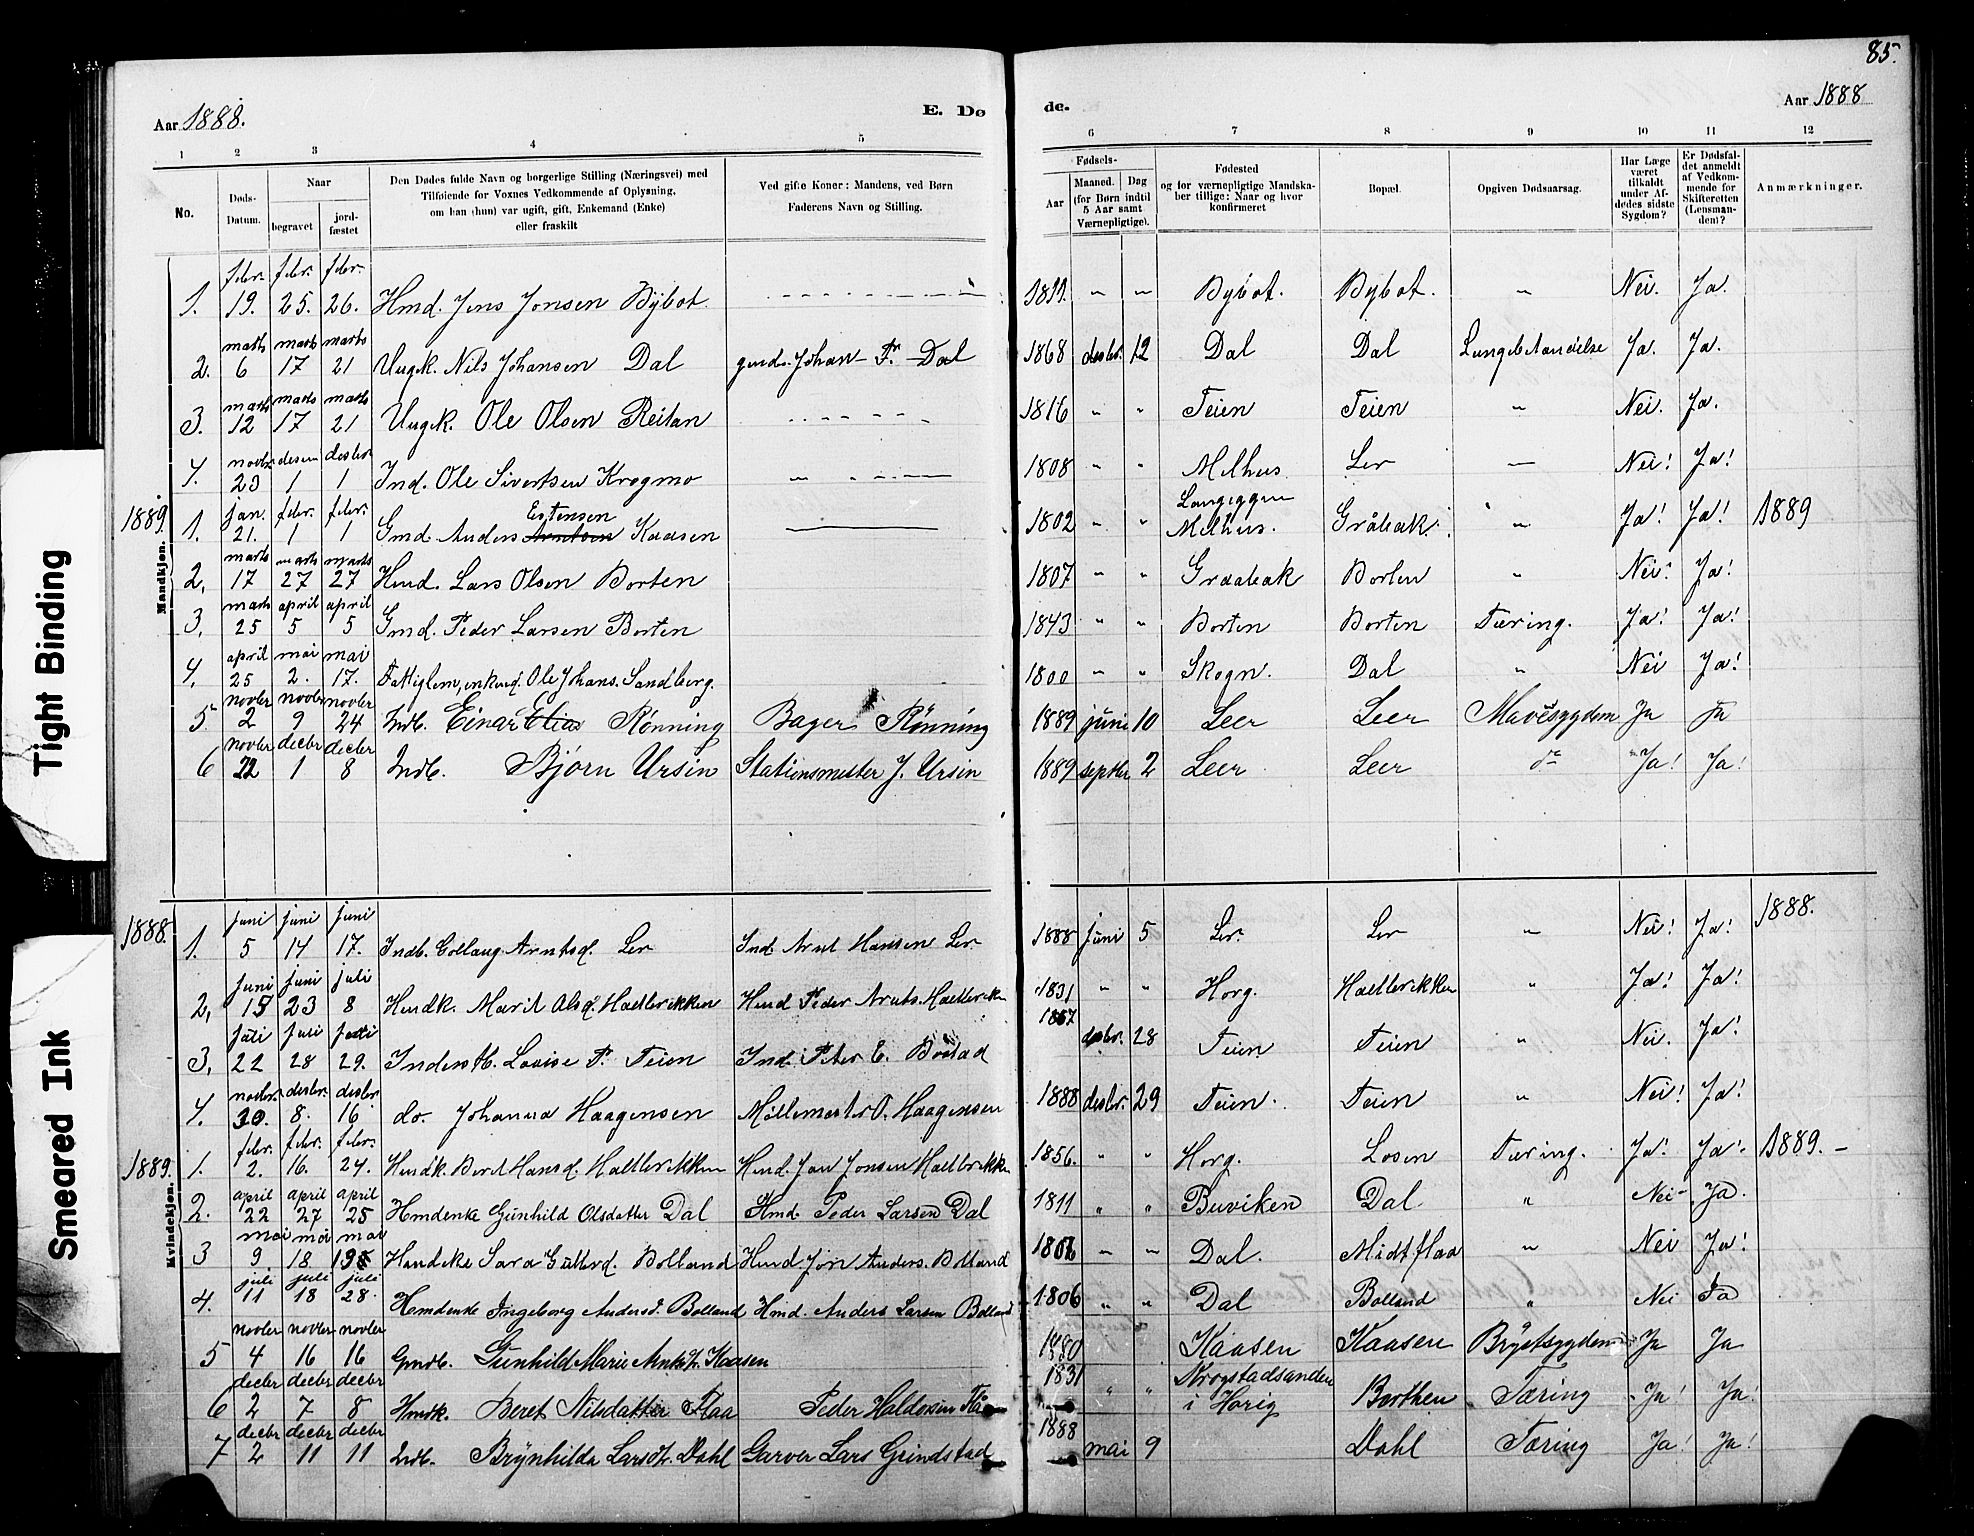 85.
Aar 1888. E. Dø de. Aar 1888
1 2 3 4 5 6 7 8 9 10 11 12
No. Døds-Datum. Naar begravet jord-fæstet Den Dødes fulde Navn og borgerlige Stilling (Næringsvei) med Tilføiende for Voxnes Vedkommende af Oplysning, om han (hun) var ugift, gift, Enkemand (Enke) eller fraskilt Ved gifte Koner: Mandens, ved Børn Faderens Navn og Stilling. Fødsels- Aar Maaned. Dag (for Børn indtil 5 Aar samt Værnepligtige). Fødested og for værnepligtige Mandskaber tillige: Naar og hvor konfirmeret Bopæl. Opgiven Dødsaarsag. Har Læge været tilkaldt under Afdødes sidste Sygdom? Er Dødsfaldet anmeldt af Vedkommende for Skifteretten (Lensmanden)? Anmærkninger.
Mandkjøn.
1. febr. 19. febr. 25. febr. 26. Hmd. Jens Jonsen Bybot 1811. " " Bybot. Bybot. " Nei. Ja.
2. marts 6 marts 17 marts 21 Ungk. Nils Johansen Dal gmds. Johan F. Dal 1868 desbr. 12 Dal Dal Lungebetændelse Ja. Ja.
3. marts 12 marts 17 marts 21 Ungk. Ole Olsen Reitan 1816 " " Teien Teien " Nei. Ja.
4. novbr. 23 desem 1 desbr 1 Ind. Ole Sivertsen Krogmo 1808 " " Melhus Ler — Nei! Ja!
1889. 1. jan. 21. febr. 1 febr. 1 Gmd. Anders Estensen Kaasen 1802 " " Langeggen Melhus. Gråbak. " Ja! Ja! 1889
2, marts 17 marts 27 marts 27 Hmd. Lars Olsen Borten 1807 " " Graabak Borten " Nei! Ja!
3, marts 25 april 5 april 5 Gmd. Peder Larsen Borten 1843 " " Borten Borten Tæring. Ja! Ja!
4, april 25 mai 2. mai 17. Fattiglem, enkmd. Ole Johans. Sandberg. 1800 " " Skogn. Dal " Nei Ja!
5. novbr 2 novbr 9 novbr 24 Indb. Einar Elias Rønning Bager Rønning 1889 juni 10 Leer Leer Mavesygdom Ja Ja
6 novbr 22 decbr 1 decbr 8 Indb. Bjørn Ursin Stationsmester J. Ursin 1889 septbr 2 Leer Leer do Ja! Ja!
Kvindekjøn.
1888. 1. juni 5 juni 14 juni 17. Indb. Gollaug Arntsd. Ler Ind. Arnt Hansen Ler 1888 juni 5 Ler. Ler " Nei! Ja! 1888.
2, juni 15 juni 23 juli 8 Hmdk. Marit Olsd. Haltbrekken Hmd Peder Arnts. Haltbrekken 1831 " " Horg. Haltbrekken " Ja! Ja!
3, juli 22 juli 28 juli 29. Inderstb. Lovise P. Teien Ind. Peter E. 1887 desbr. 28 Teien Teien " Nei. Ja!
4. novbr. 30. desbr. 8. desbr 16 do. Johanna Haagensen Møllemester O. Haagensen 1888 desbr. 29 Teien. Teien " Nei! Ja!
1889. 1. febr. 2. febr. 16. febr. 24. Hmdk. Berit Hansd. Haltbrekken Hmd. Jon Jonsen Haltbrekken 1856. " " Horg. Losen Tæring. Ja! Ja. 1889. —
2. april 22 april 27 april 25 Hmdenke Gunhild Olsdatter Dal Hmd. Peder Larsen Dal 1811 " " Buviken Dal " Nei Ja.
3 mai 9. mai 18 mai Hmdenke Sara Gulbrd. Bolland Hmd. Jon Anders. Bolland " " Dal. Midtflaa " Nei Ja!
4. juli 11 juli 18 juli 28. Hmdenke Ingeborg Andersd. Bolland Hmd. Anders Larsen Bolland 1806 " " Dal Bolland " Nei Ja
5 novbr 4 novbr 16 novbr 16 Gmdb. Gunhild Marie Arntsd. Kaasen 1880 Kaasen Kaasen Brystsygdom Ja Ja
6 decbr 2 decbr 7 decbr 8 Hmdk. Beret Nilsdatter Flaa Peder Haldorsen Flå 1831 " " Krogstadsanden i Horig Borthen Tæring Ja! Ja!
7 decbr 2 decbr 11 decbr 11 Indb. Brynhilda Larsd. Dahl Garver Lars Grindstad 1888 mai 9 Dahl Tæring Ja! Ja!
Tight Binding
Smeared Ink